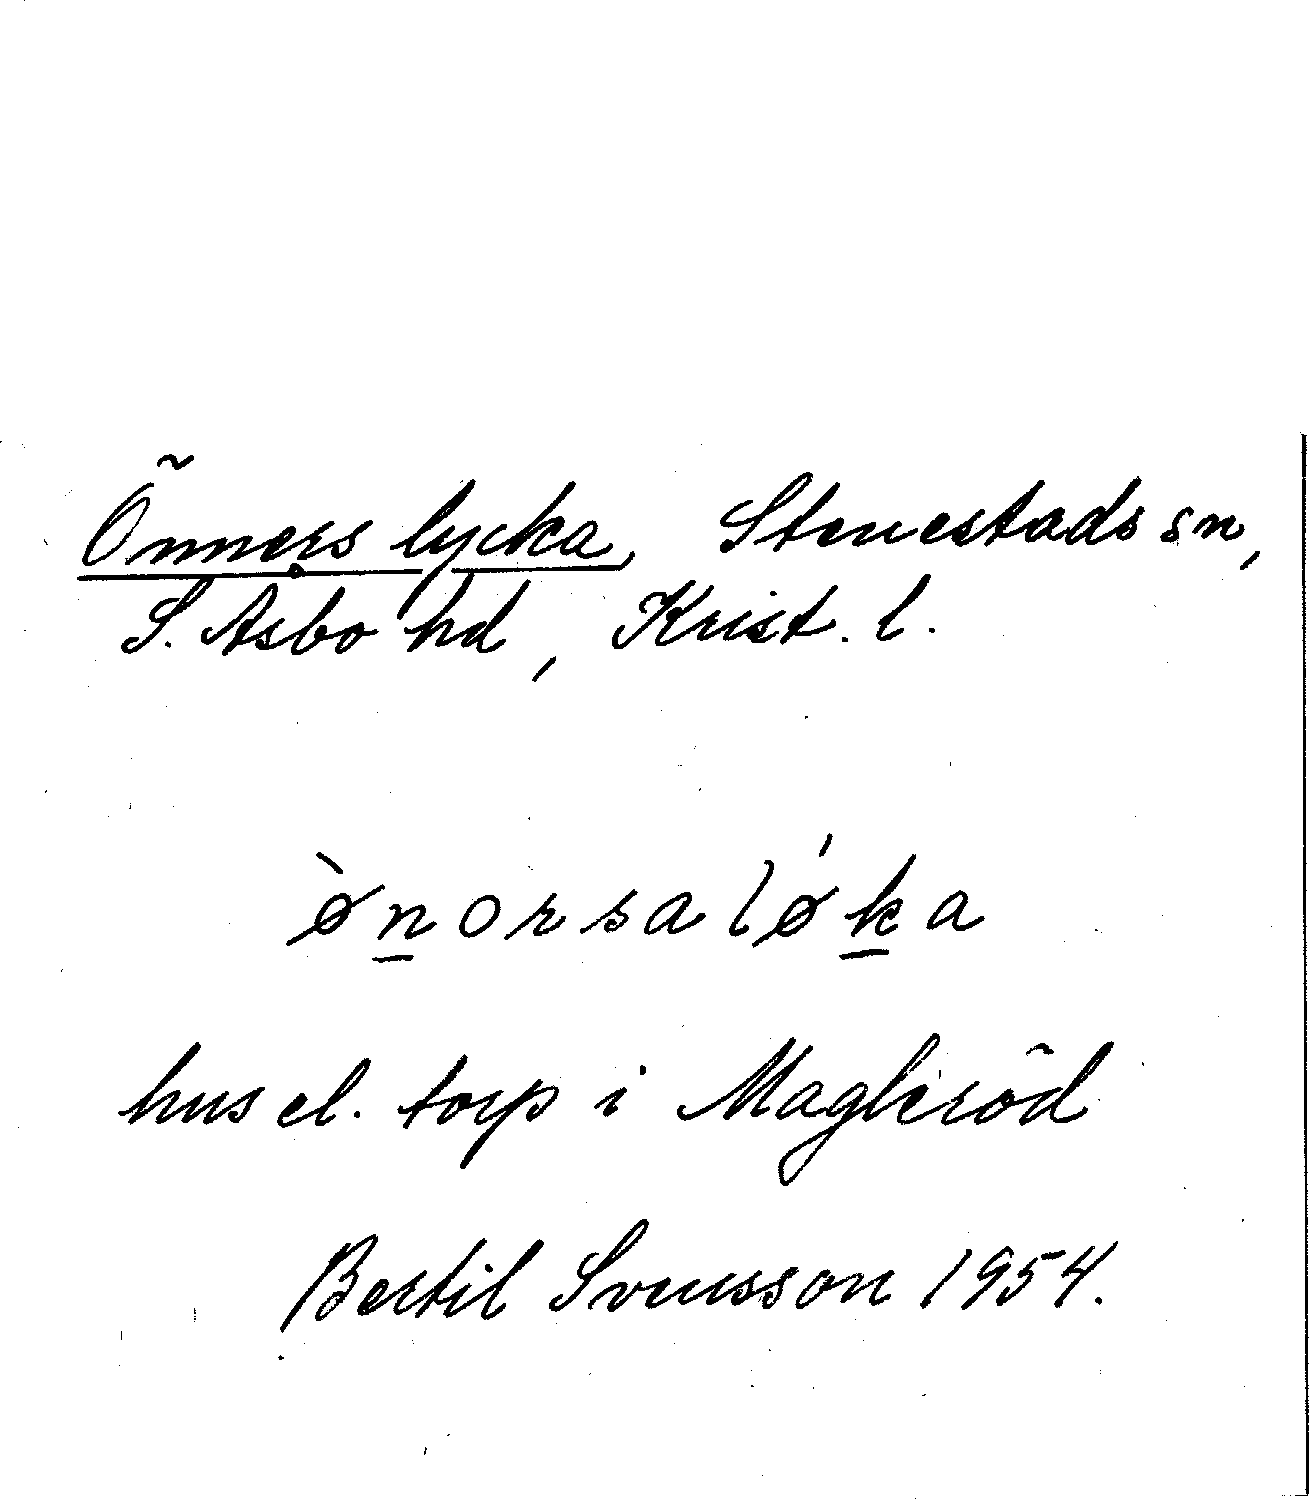 Önners lycka, Stenestads sn,
S. Åsbo hd, Krist. l.
ǿ̀n̲orsalǿk̲a
hus el. torp i Magleröd
Bertil Svensson 1954.